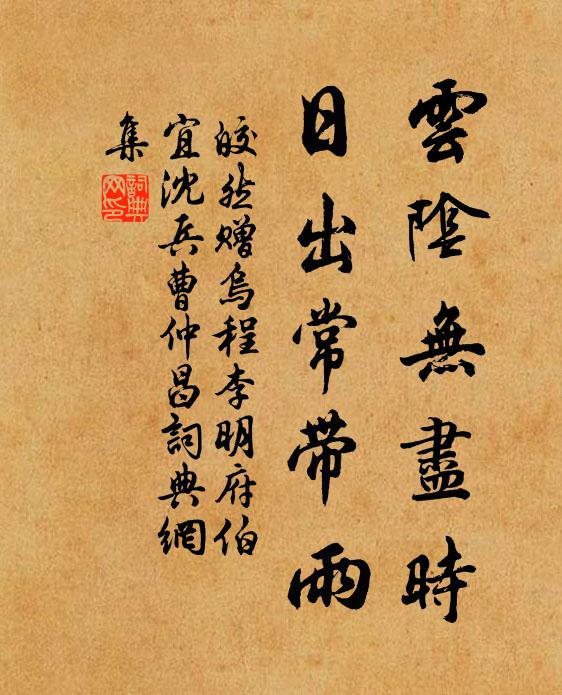 雲陰無盡時
日出常帶雨
皎然贈烏程李明府伯
宜沈兵曹仲昌詞典網
集
詞典
网印